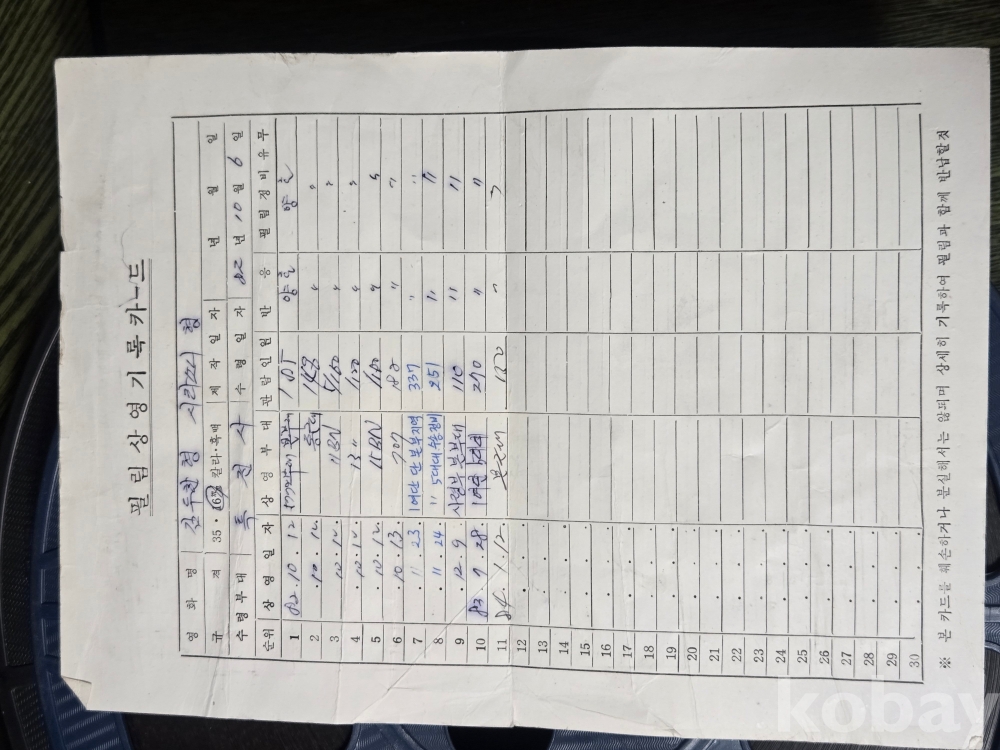 필림상영기록카드
영화명
규격 35 · 16% 칼라·흑백 제작일자 년 월 일
수령부대 특전사 수령일자 82년 10월 6일
순위 상영일자 상영부대 관람인원 반응 필림정비유무
1 82. 10. 12 양호 양호
2 . 10. 12. 〃 〃
3 10. 12. 11BN 〃 〃
4 . 10. 12. 13 〃 〃 〃
5 10. 12 15BN 〃 〃
6 . 10. 13. 707 〃
7 11. 23 1여단 본부지역 337 〃 〃
8 . 11. 24. 〃 5대대 251 〃 〃
9 . 12. 9. 사령부 본부대 110 〃 〃
10 83. 9. 28 1여단 270 〃 〃
11 84. 1. 12. 본부대
12 . .
13 . .
14 . .
15 . .
16 . .
17 . .
18 . .
19 . .
20 . .
21 . .
22 . .
23 . .
24 . .
25 . .
26 . .
27 . .
28 . .
29 . .
30 . .
※ 본 카드를 훼손하거나 분실해서는 않되며 상세히 기록하여 필림과 함께 반납할것
kobay